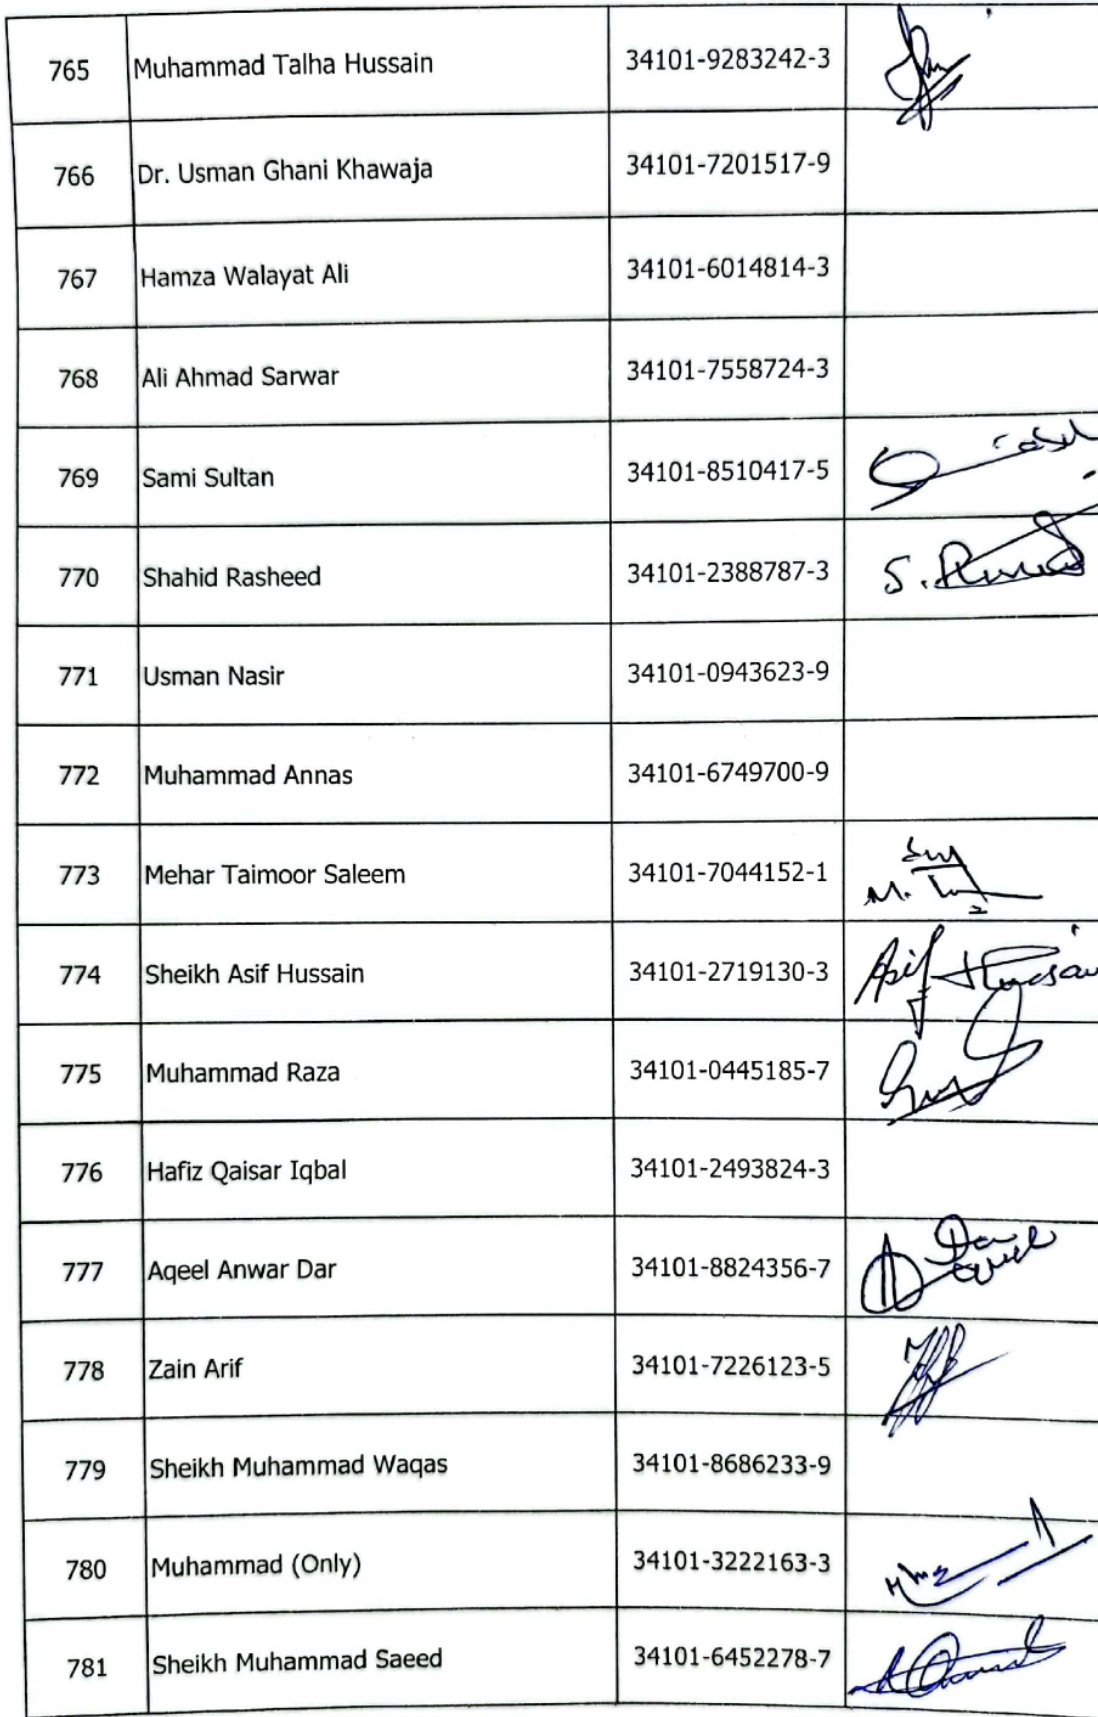 765 Muhammad Talha Hussain 34101-9283242-3
766 Dr. Usman Ghani Khawaja 34101-7201517-9
767 Hamza Walayat Ali 34101-6014814-3
768 Ali Ahmad Sarwar 34101-7558724-3
769 Sami Sultan 34101-8510417-5
770 Shahid Rasheed 34101-2388787-3 S.
771 Usman Nasir 34101-0943623-9
772 Muhammad Annas 34101-6749700-9
773 Mehar Taimoor Saleem 34101-7044152-1 M.
774 Sheikh Asif Hussain 34101-2719130-3 Asif Hussain
775 Muhammad Raza 34101-0445185-7
776 Hafiz Qaisar Iqbal 34101-2493824-3
777 Aqeel Anwar Dar 34101-8824356-7
778 Zain Arif 34101-7226123-5
779 Sheikh Muhammad Waqas 34101-8686233-9
780 Muhammad (Only) 34101-3222163-3
781 Sheikh Muhammad Saeed 34101-6452278-7